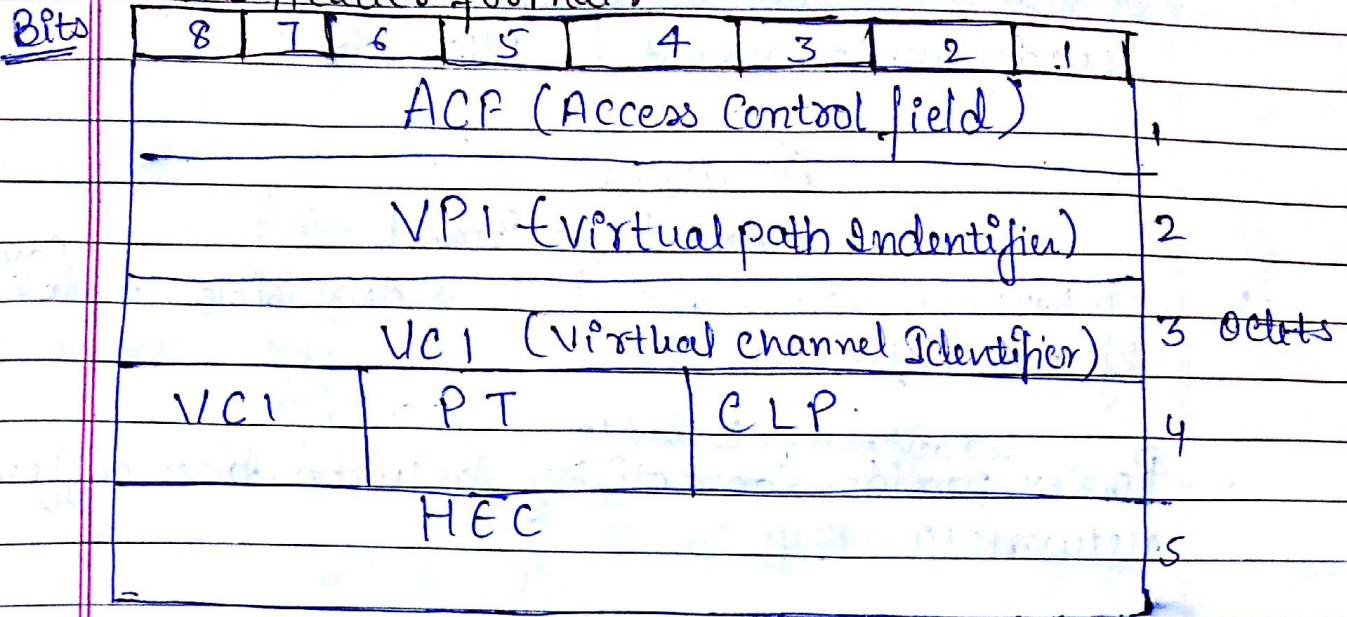 Bits 8 7 6 5 4 3 2 1
ACF (Access Control field) 1
VPI (Virtual path Indentifier) 2
VCI (Virtual channel Identifier) 3 octets
VCI PT CLP. 4
HEC 5